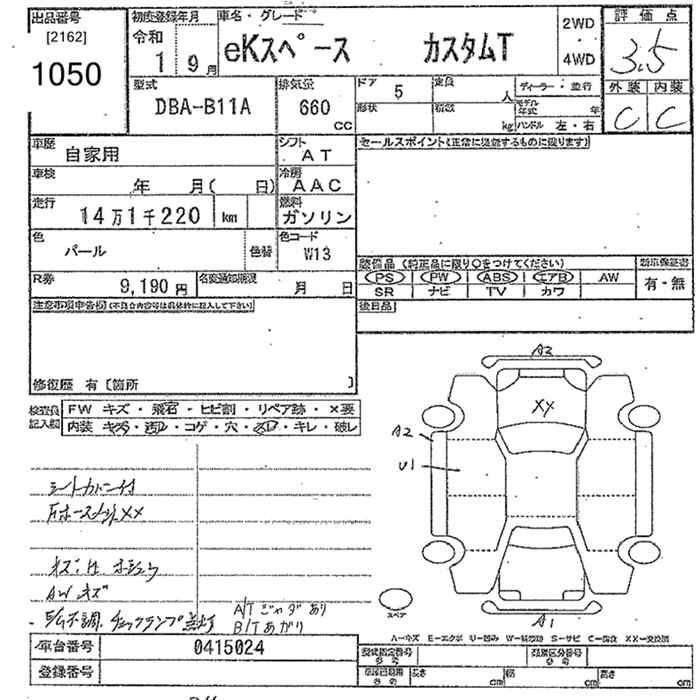 出品番号
[2162]
1050
初度登録年月
令和
1 9月
車名・グレード
eKスペース カスタムT
2WD
・
4WD
評価点
3.5
外装 内装
C C
型式
DBA-B11A
排気量
660
cc
ドア 5
定員 人
ディーラー・並行
形状
積数 kg
モデル年式 年
ハンドル 左・右
車歴
自家用
シフト
AT
セールスポイント(正常に機能するものに限ります)
車検
年 月( 日)
冷房
AAC
走行
14万1千220 km
燃料
ガソリン
色
パール
色替
色コード
W13
装備品 (純正品に限り○をつけてください)
PS PW ABS エアB AW
SR ナビ TV カワ
新車保証書
有・無
R券
9,190円
名変通知期限
月 日
後日品
注意事項申告欄(不具合内容等は具体的に記入して下さい)
修復歴 有〔箇所 〕
検査員記入欄
FW キズ・飛石・ヒビ割・リペア跡・×要
内装 キズ・汚れ・コゲ・穴・スレ・キレ・破レ
シートカバー付
XX
AW キズ
チェックランプ点灯
A/T ジャダあり
B/T あがり
A2
XX
A2
U1
スペア
A1
A-キズ E-エクボ U-凹み W-補修跡 S-サビ C-腐食 XX-交換済
車台番号
0415024
登録番号
型式指定番号
参考
類別区分番号
参考
車検証期用
参考
長さ cm
幅 cm
高さ cm